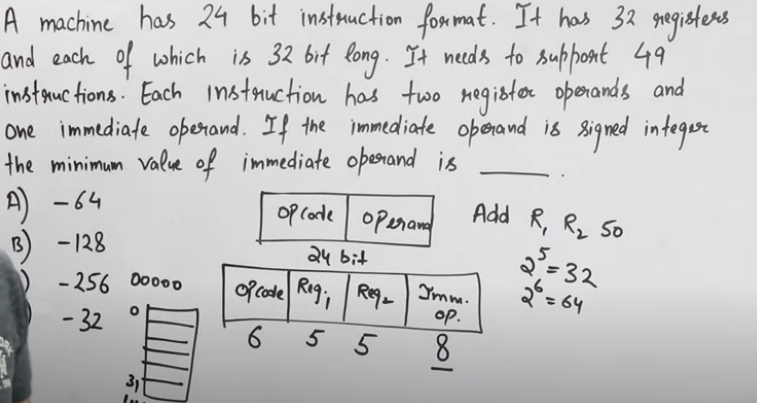 A machine has 24 bit instruction format. It has 32 registers
and each of which is 32 bit long. It needs to support 49
instructions. Each instruction has two register operands and
one immediate operand. If the immediate operand is signed integer
the minimum value of immediate operand is _____.
A) -64
B) -128
) -256
-32
opcode operand
24 bit
Add R1 R2 50
2^5 = 32
2^6 = 64
00000
0
31
opcode Reg1 Reg2 Imm. op.
6 5 5 8